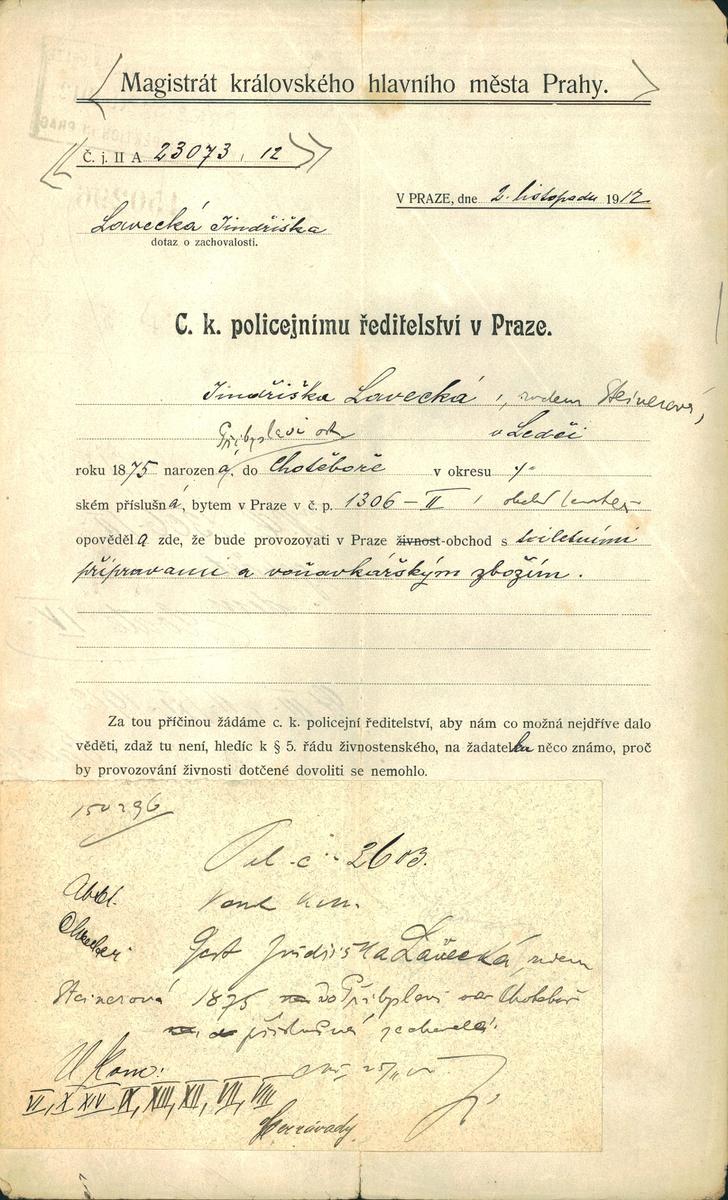 Magistrát královského hlavního města Prahy.
Č. j. II A 23073, 12
V PRAZE, dne 2. listopadu 1912
Lavecká Jindřiška
dotaz o zachovalosti.
C. k. policejnímu ředitelství v Praze.
Jindřiška Lavecká, rodem Steinerová,
Přibyslavi v Ledči
roku 1875 narozená, do Chotěboře v okresu
ském příslušná, bytem v Praze v č. p. 1306-II,
opověděla zde, že bude provozovati v Praze živnost-obchod s toiletními
přípravami a voňavkářským zbožím.
Za tou příčinou žádáme c. k. policejní ředitelství, aby nám co možná nejdříve dalo
věděti, zdaž tu není, hledíc k § 5. řádu živnostenského, na žadatelku něco známo, proč
by provozování živnosti dotčené dovoliti se nemohlo.
150296
2603.
Jindřiška Lavecká, rodem
Steinerová 1875 Přibyslavi Chotěboř
příslušná zachovalá.
VI, X XIV IX, XIII, XII, VII, VIII
Bezzávady